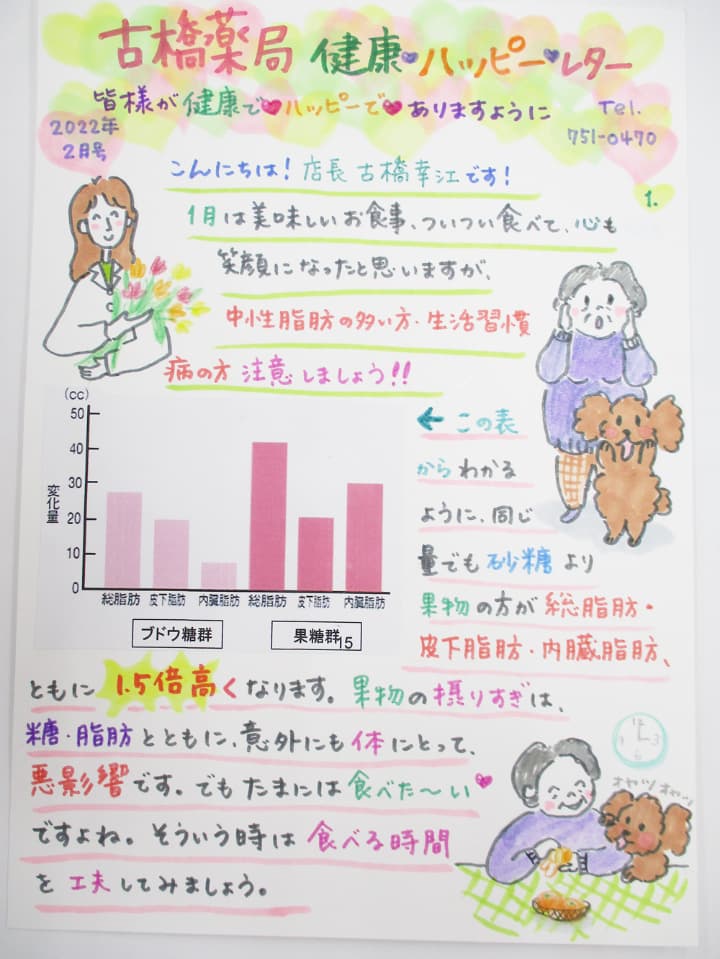 古橋薬局 健康ハッピーレター
皆様が健康でハッピーでありますように
Tel.
751-0470
2022年
2月号
1.
こんにちは！店長 古橋幸江です！
1月は美味しいお食事、ついつい食べて、心も
笑顔になったと思いますが、
中性脂肪の多い方・生活習慣
病の方 注意しましょう!!
(cc)
50
40
30
20
10
0
変化量
総脂肪 皮下脂肪 内臓脂肪 総脂肪 皮下脂肪 内臓脂肪
ブドウ糖群 果糖群
15
← この表
からわかる
ように、同じ
量でも 砂糖 より
果物の方が 総脂肪・
皮下脂肪・内臓脂肪、
ともに 1.5倍高くなります。果物の摂りすぎは、
糖・脂肪とともに、意外にも体にとって、
悪影響です。でもたまには食べた〜い
ですよね。そういう時は 食べる時間
を 工夫してみましょう。
12
3
6
オヤツ オヤツ